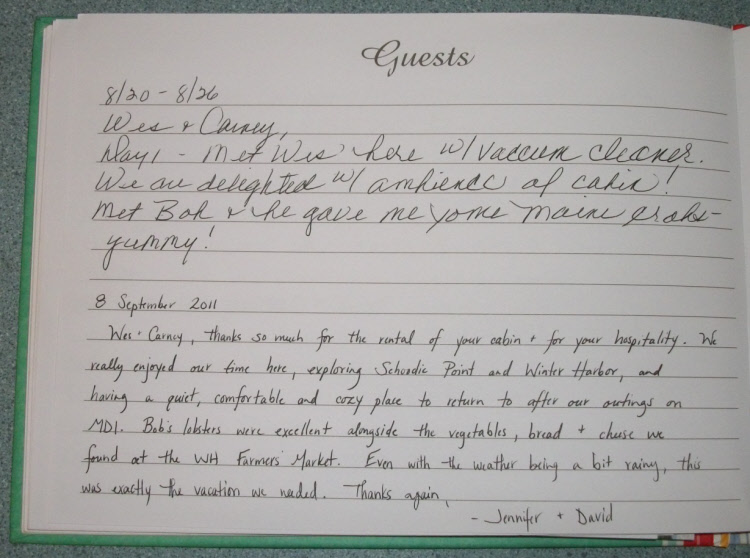 Guests
8/20 - 8/26
Wes + Carney,
Day 1 - Met Wes here w/ vaccum cleaner.
We are delighted w/ ambience of cabin!
Met Bob & he gave me some Maine crabs-
yummy!
8 September 2011
Wes + Carney, thanks so much for the rental of your cabin + for your hospitality. We
really enjoyed our time here, exploring Schoodic Point and Winter Harbor, and
having a quiet, comfortable and cozy place to return to after our outings on
MDI. Bob's lobsters were excellent alongside the vegetables, bread + cheese we
found at the WH Farmers' Market. Even with the weather being a bit rainy, this
was exactly the vacation we needed. Thanks again,
- Jennifer + David